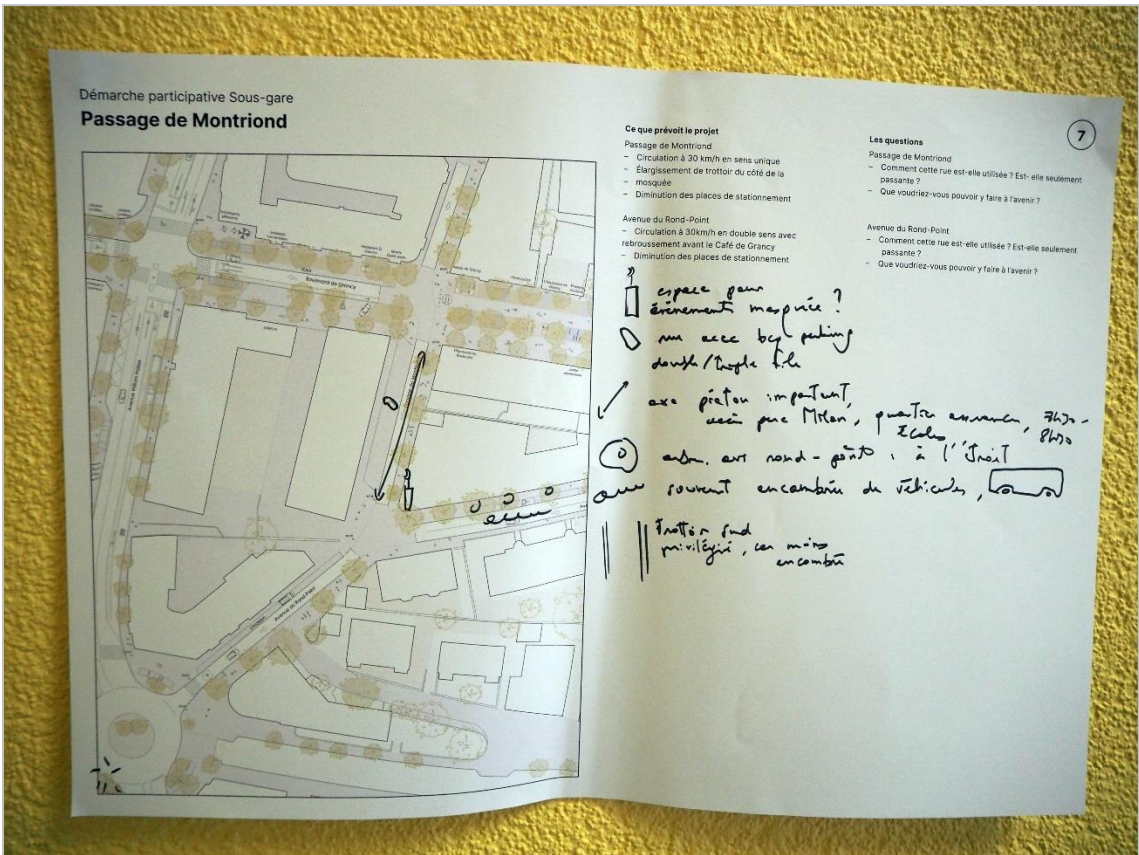 Démarche participative Sous-gare
Passage de Montriond
7
Ce que prévoit le projet
Passage de Montriond
– Circulation à 30 km/h en sens unique
– Élargissement de trottoir du côté de la
– mosquée
– Diminution des places de stationnement
Avenue du Rond-Point
– Circulation à 30km/h en double sens avec
rebroussement avant le Café de Grancy
– Diminution des places de stationnement
Les questions
Passage de Montriond
– Comment cette rue est-elle utilisée ? Est- elle seulement
passante ?
– Que voudriez-vous pouvoir y faire à l'avenir ?
Avenue du Rond-Point
– Comment cette rue est-elle utilisée ? Est-elle seulement
passante ?
– Que voudriez-vous pouvoir y faire à l'avenir ?
espace pour
événements mosquée ?
rue avec bcp parking
double/triple file
axe piéton important,
parc Milan, quartier
écoles, 7h30 -
8h30
rond-point : à l'étroit
souvent encombré de véhicules,
trottoir sud
privilégié, car moins
encombré
Boulevard de Grancy
Avenue du Rond-Point